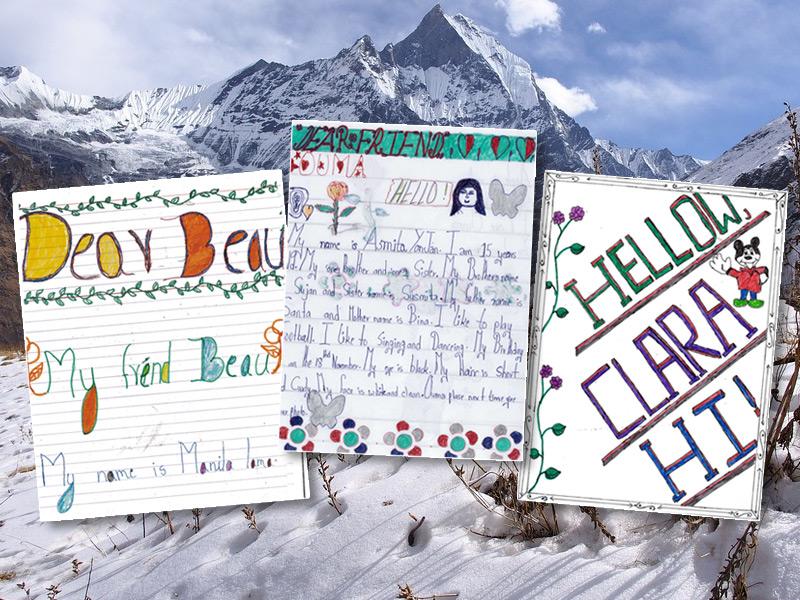 Dear Beau
My friend Beau
My name is Manila lama.
DEAR FRIEND
HELLO!
My name is Asmita Yonjan. I am 15 years
My one Brother and one Sister. My Brothers name
Sujan and Sister name is Susmita. My father name is
Santa and Mother name is Bina. I like to play
football. I like to singing and Dancing. My Birthday
the 13th November. My eye is black. My Hair is short
My face is white and clean. please next time give
photo
HELLOW,
CLARA
HI!